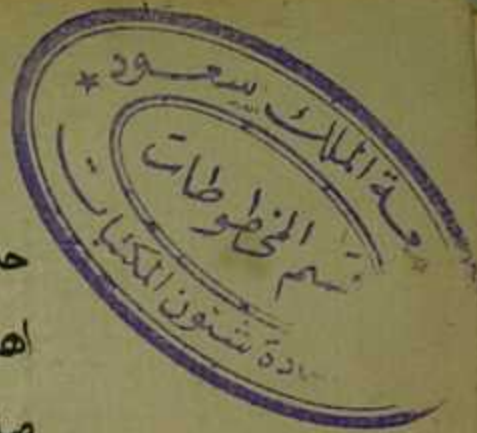 ـعة الملك سعود *
ـسم المخطوطات
ـادة شئون المكتبات